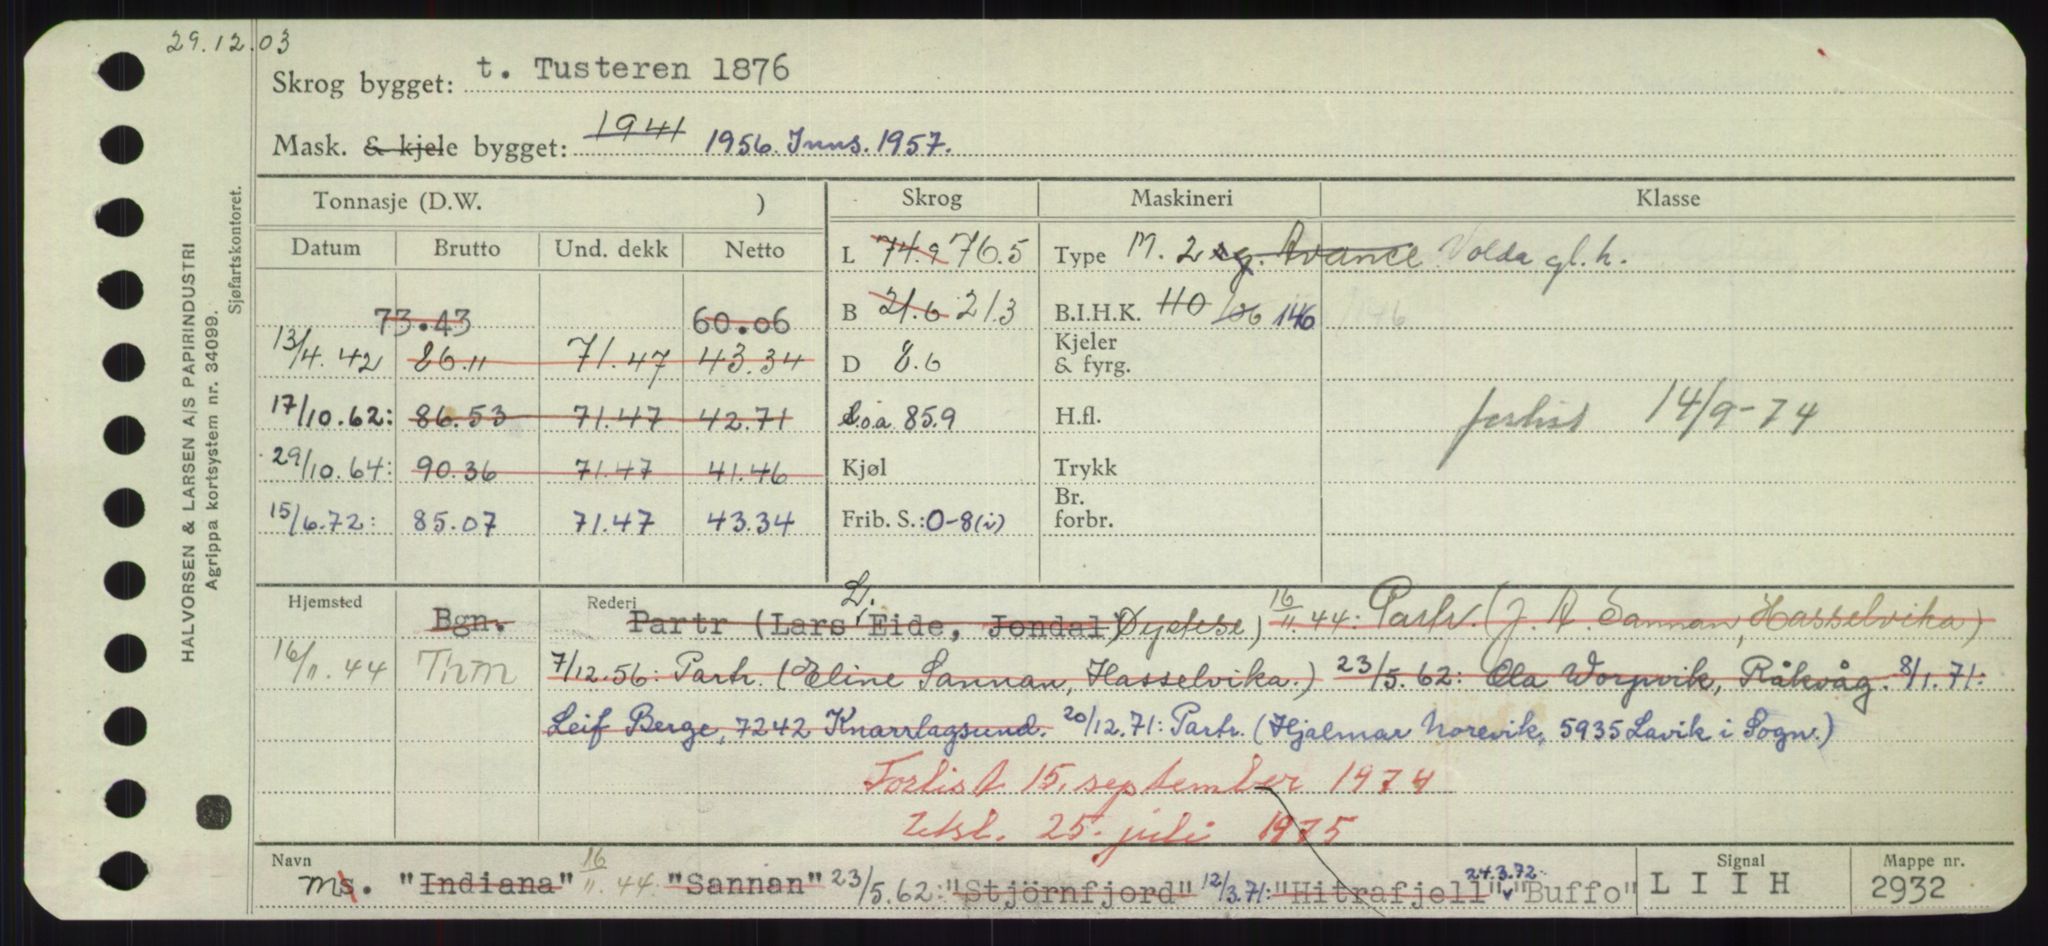 29.12.03
Skrog bygget: t. Tusteren 1876
Mask. & kjele bygget: 1941 1956. Inns. 1957.
Tonnasje (D.W. ) Skrog Maskineri Klasse
Datum Brutto Und. dekk Netto
L 74.9 76.5 Type M. 2 sg. Avance Volda gl.h.
73.43 60.06 B 21.6 21.3 B.I.H.K. 110 106 146 146
13/4.42 86.11 71.47 43.34 D 8.6 Kjeler & fyrg.
17/10.62: 86.53 71.47 42.71 L.o.a. 85.9 H.fl. forlist 14/9-74
29/10.64: 90.36 71.47 41.46 Kjøl Trykk
15/6.72: 85.07 71.47 43.34 Frib. S.: 0-8(i) Br. forbr.
Hjemsted Rederi
Bgn. Partr (Lars L. Eide, Jondal) Øystese) 16/11.44: Partr. (J. A. Sannan, Hasselvika)
16/11.44 Thm 7/12.56: Partr. (Eline Sannan, Hasselvika.) 23/5.62: Ola Worpvik, Råkvåg. 8/1.71:
Leif Berge, 7242 Knarrlagsund. 20/12.71: Partr. (Hjalmar Norevik, 5935 Lavik i Sogn.)
Forlist 15. september 1974
Utsl. 25. juli 1975
Navn Signal Mappe nr.
24.3.72
ms. "Indiana" 16/11.44 "Sannan" 23/5.62: "Stjörnfjord" 12/3.71: "Hitrafjell" "Buffo" LIIH 2932
HALVORSEN & LARSEN A/S PAPIRINDUSTRI
Agrippa kortsystem nr. 34099.
Sjøfartskontoret.